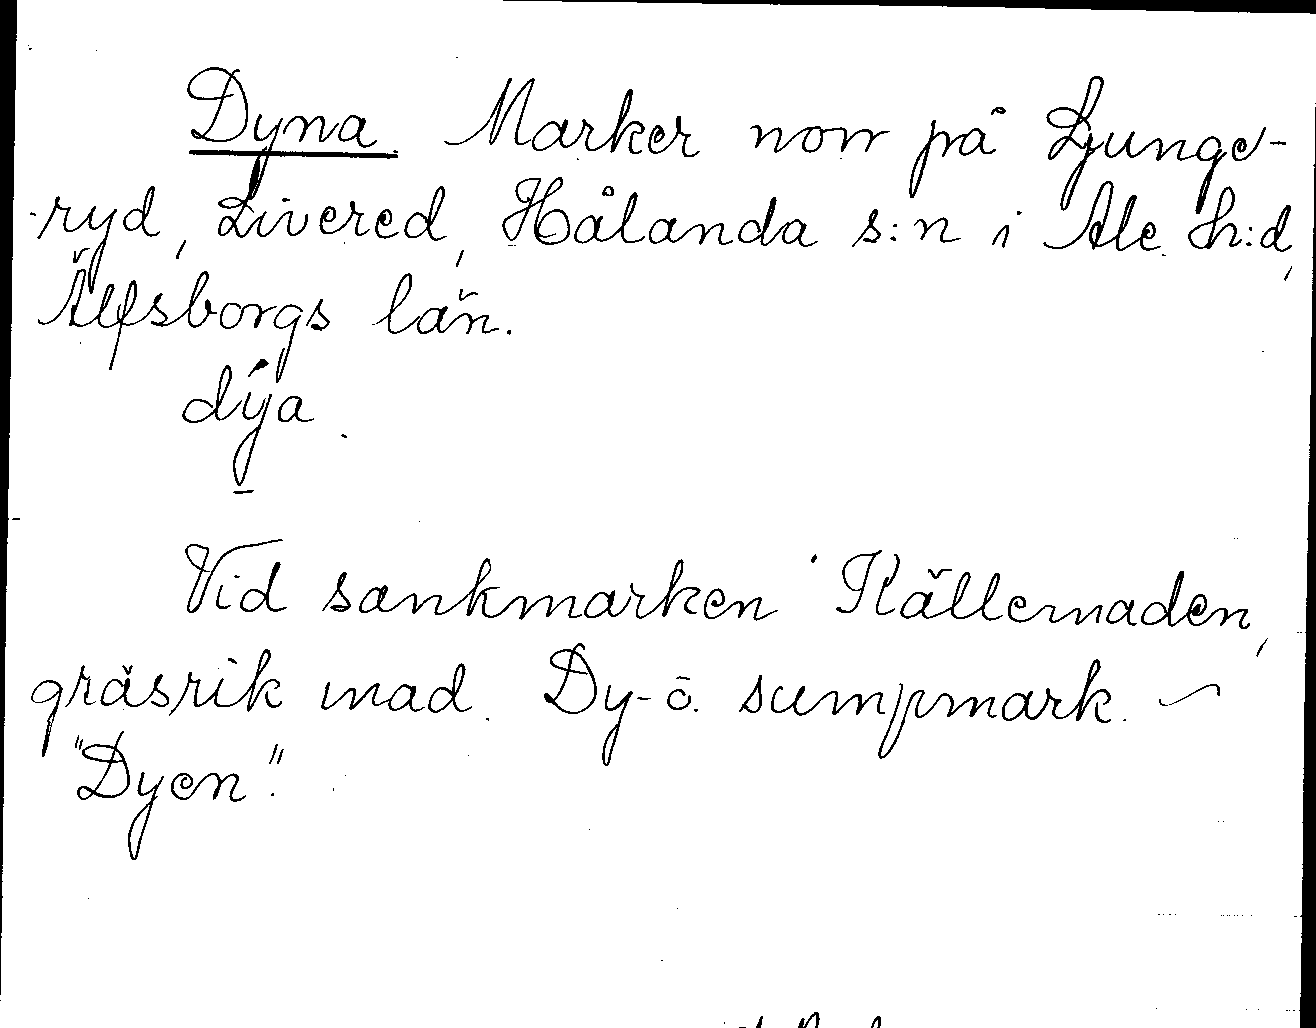 Dyna. Marker norr på Ljunge-
ryd, Livered, Hålanda s:n i Ale h:d,
Älfsborgs län.
dýa.
Vid sankmarken Källemaden,
gräsrik mad. Dy- o. sumpmark. ~
"Dyen".